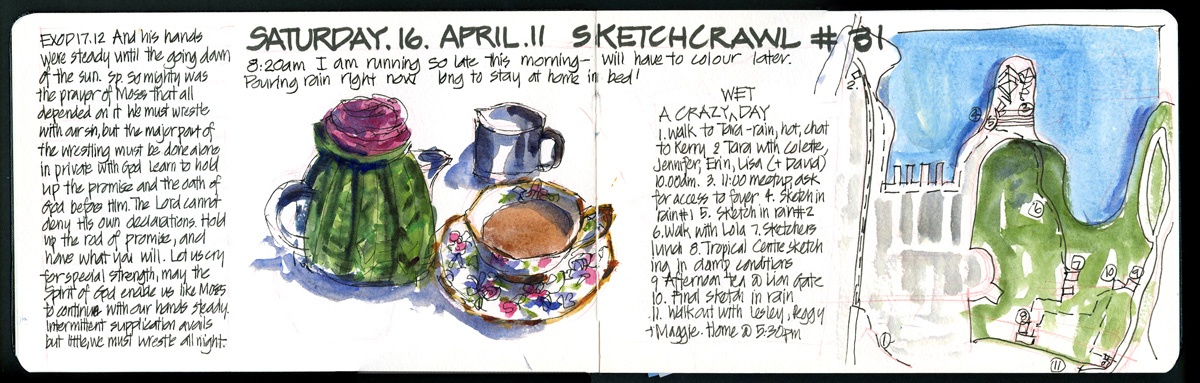 EXOD 17.12 And his hands
were steady until the going down
of the sun. Sp. so mighty was
the prayer of Moses that all
depended on it We must wrestle
with our sin, but the major part of
the wrestling must be done alone
in private with God Learn to hold
up the promise and the oath of
God before Him. The Lord cannot
deny His own declarations. Hold
up the rod of promise, and
have what you will. Let us cry
for special strength, may the
Spirit of God enable us like Moses
to continue with our hands steady.
Intermittent supplication avails
but little, we must wrestle all night.
SATURDAY.16. APRIL.11 SKETCHCRAWL # 31
8:20am I am running so late this morning - will have to colour later.
Pouring rain right now long to stay at home in bed!
WET
A CRAZY ^ DAY
1. Walk to Tara - rain, hot, chat
to Kerry 2 Tara with Colette,
Jennifer, Erin, Lisa (+ David)
10.00am. 3. 11:00 meetup, ask
for access to foyer 4. Sketch in
rain #1 5. Sketch in rain #2
6. Walk with Lola 7. Sketchers
lunch 8. Tropical Centre sketch
ing in damp conditions
9 Afternoon tea @ Lion Gate
10. Final sketch in rain
11. Walkout with Lesley, Peggy
+ Maggie. Home @ 5:30pm
2.
4
5
6
7
10
9
8
1
11